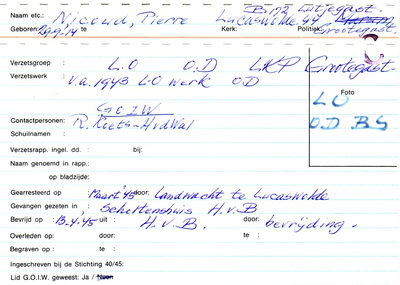 B.n.z. Lutjegast.
Naam etc.: Nicoud, Pierre Lucaswolde 44
Geboren: 29.9.14 te Kerk: Politiek: Grootegast.
Verzetsgroep : L.O O.D LKP Grootegast.
Verzetswerk : v.a. 1943 L-O werk O.D
Foto
LO
O.D BS
G.O.I.W
Contactpersonen: R. Riets-HvdWal
Schuilnamen :
Verzetsrapp. ingel. dd. : bij:
Naam genoemd in rapp.:
op bladzijde:
Gearresteerd op : Maart '45 door: Landwacht te Lucaswolde
Gevangen gezeten in : Scholtenshuis H.v.B
Bevrijd op : 13-4-45 uit : H.v.B. door: bevrijding.
Overleden op: door: te :
Begraven op : te :
Ingeschreven bij de Stichting 40/45:
Lid G.O.I.W. geweest: Ja / Neen